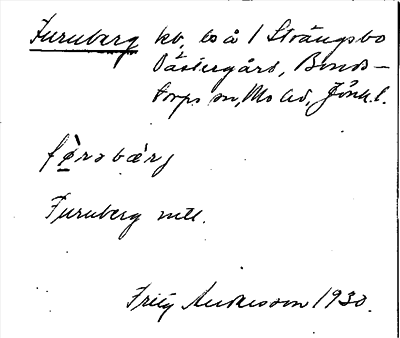 Furuberg kb, ls å 1 Strängsbo
Västergård, Bonds-
torps sn, Mo hd, Jönk. l.
Furuberg mtl.
Fritz Andersson 1930.